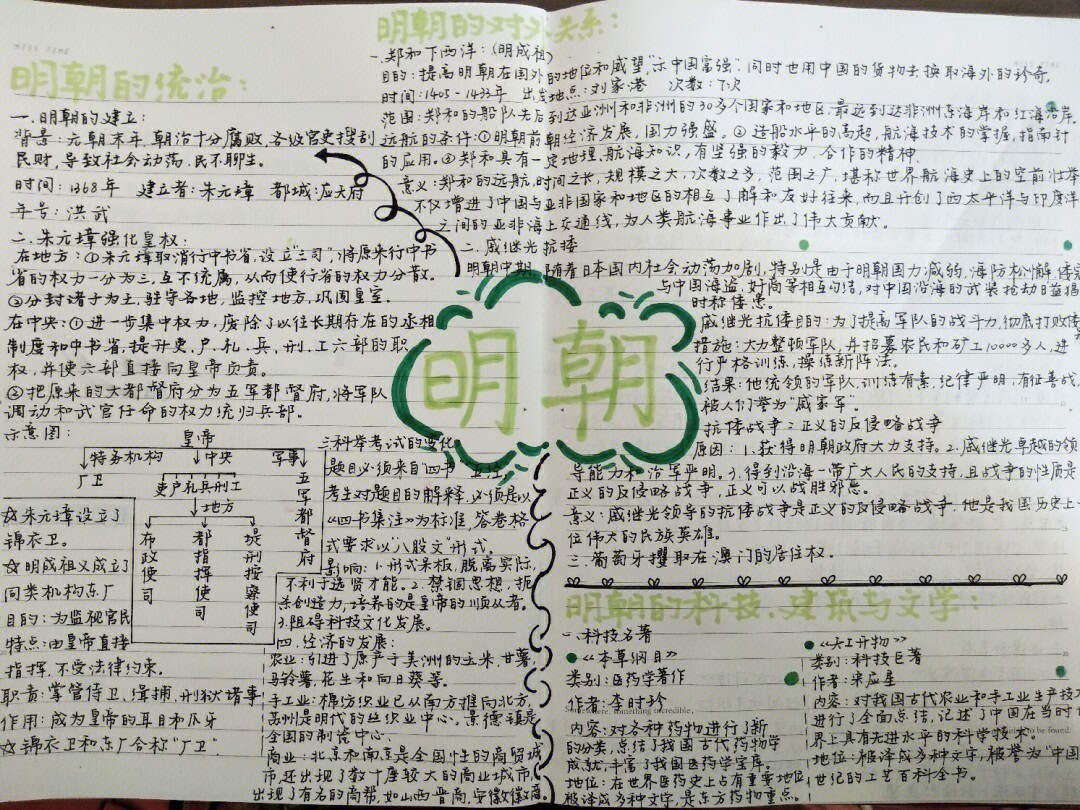 明朝的统治：
一.明朝的建立：
背景：元朝末年,朝治十分腐败,各级官吏搜刮
民财,导致社会动荡,民不聊生。
时间：1368年 建立者：朱元璋 都城：应天府
年号：洪武
二.朱元璋强化皇权：
在地方：①朱元璋取消行中书省,设立“三司”,将原来行中书
省的权力一分为三,互不统属,从而使行省的权力分散。
②分封诸子为王,驻守各地,监控地方,巩固皇室.
在中央：①进一步集中权力,废除了以往长期存在的丞相
制度和中书省,提升吏、户、礼、兵、刑、工六部的职
权,并使六部直接向皇帝负责。
②把原来的大都督府分为五军都督府,将军队
调动和武官任命的权力统归兵部。
示意图：
皇帝
特务机构 中央 军事
厂卫
吏户礼兵刑工
五军都督府
地方
布政使司
都指挥使司
提刑按察使司
☆朱元璋设立了
锦衣卫。
☆明成祖又成立了
同类机构东厂
目的：为监视官民
特点：由皇帝直接
指挥,不受法律约束.
职责：掌管侍卫、缉捕、刑狱诸事
作用：成为皇帝的耳目和爪牙
☆锦衣卫和东厂合称“厂卫”.
三.科举考试的变化
题目必须来自“四书”五经
考生对题目的解释,必须是以
《四书集注》为标准,答卷格
式要求以“八股文”形式。
影响：1.形式呆板,脱离实际,
不利于选贤才能。2.禁锢思想,扼
杀创造力,培养的是皇帝的顺从者。
3.阻碍科技文化发展。
四.经济的发展：
农业：引进了原产于美洲的玉米、甘薯,
马铃薯、花生和向日葵等.
手工业：棉纺织业已从南方推向北方,
苏州是明代的丝织业中心。景德镇是
全国的制瓷中心.
商业：北京和南京是全国性的商贸城
市,还出现了数十座较大的商业城市,
出现了有名的商帮,如山西晋商,安徽徽商
明朝的对外关系：
一.郑和下西洋：(明成祖)
目的：提高明朝在国外的地位和威望,“示中国富强”.同时也用中国的货物去换取海外的珍奇.
时间：1405-1433年 出发地点：刘家港 次数：7次
范围：郑和的船队先后到达亚洲和非洲的30多个国家和地区.最远到达非洲东海岸和红海沿岸.
远航的条件：①明朝前朝经济发展,国力强盛。②造船水平的高超,航海技术的掌握,指南针
的应用.③郑和具有一定地理、航海知识,有坚强的毅力、合作的精神.
意义：郑和的远航,时间之长,规模之大,次数之多,范围之广,堪称世界航海史上的空前壮举
不仅增进了中国与亚非国家和地区的相互了解和友好往来,而且开创了西太平洋与印度洋
之间的亚非海上交通线,为人类航海事业作出了伟大贡献。
二.戚继光抗倭
明朝中期,随着日本国内社会动荡加剧,特别是由于明朝国力减弱,海防松懈,倭寇
与中国海盗、奸商等相互勾结,对中国沿海的武装抢劫日益猖
时称倭患.
明朝
戚继光抗倭目的：为了提高军队的战斗力,彻底打败倭
措施：大力整顿军队,并招募农民和矿工10000多人,进
行严格训练,操练新阵法.
结果：他统领的军队,训练有素,纪律严明,有征善战,
被人们誉为“戚家军”。
抗倭战争：正义的反侵略战争
原因：1.获得明朝政府大力支持。2.戚继光卓越的领
导能力和治军严明。3.得到沿海一带广大人民的支持,且战争的性质是
正义的反侵略战争,正义可以战胜邪恶.
意义：戚继光领导的抗倭战争是正义的反侵略战争,他是我国历史上
位伟大的民族英雄.
三.葡萄牙攫取在澳门的居住权.
明朝的科技、建筑与文学：
一.科技名著
《本草纲目》
类别：医药学著作
作者：李时珍
内容：对各种药物进行了新
的分类,总结了我国古代药物学
成就,丰富了我国医药学宝库。
地位：在世界医药史上占有重要地位,
被译成多种文字,是东方药物重点。
《天工开物》
类别：科技巨著
作者：宋应星
内容：对我国古代农业和手工业生产技
进行了全面总结,记述了中国在当时世
界上具有先进水平的科学技术。
地位：被译成多种文字,被誉为“中国
世纪的工艺百科全书。
something incredible,
to be found.